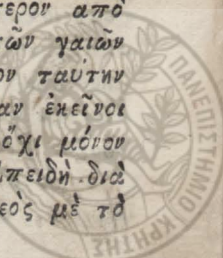 τερον ἀπὸ
τῶν γαιῶν
ον ταύτην
αν ἐκεῖνοι
ὄχι μόνον
πειδὴ διὰ
εὸς μὲ τὸ
ΠΑΝΕΠΙΣΤΗΜΙΟ ΚΡΗΤΗΣ